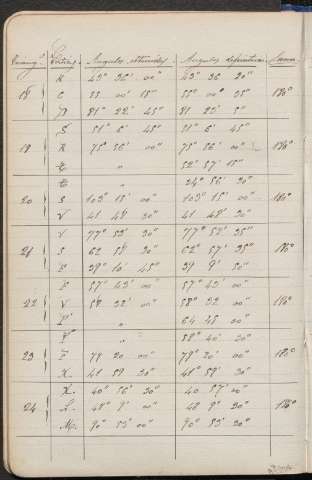 Triang.s Vértices Angulos obtenidos Angulos definitivos Suma
R 43° 36' 00" 43° 36' 20"
C 55 00' 15" 55° 00" 25" 180°
81° 22' 45" 81 23' 5"
S 51° 6' 45" 51° 6' 45"
R 75° 56' 00" 75° 56' 00" 180°
" 52° 57' 15"
" 24° 56' 30"
20 S 103° 15' 00" 103° 15' 00" 180°
V 41 48 30" 41 48 30"
V 77° 53' 30" 77° 53' 35"
21 S 62 58 30" 62° 57' 35" 180°
39° 10' 45" 39 9' 50"
57° 43' 00" 57° 43' 00"
22 V 58 32' 00" 58 32 00" 180°
P " 64 45 00"
" 58° 40' 30"
23 78 20 00" 79° 20' 00" 180°
X 41 59 30" 41° 59' 30"
X. 40° 56' 30" 40 57' 00"
24 L. 48° 9' 00" 48 9' 30" 180°
M. 90° 53' 00" 90° 53' 30"